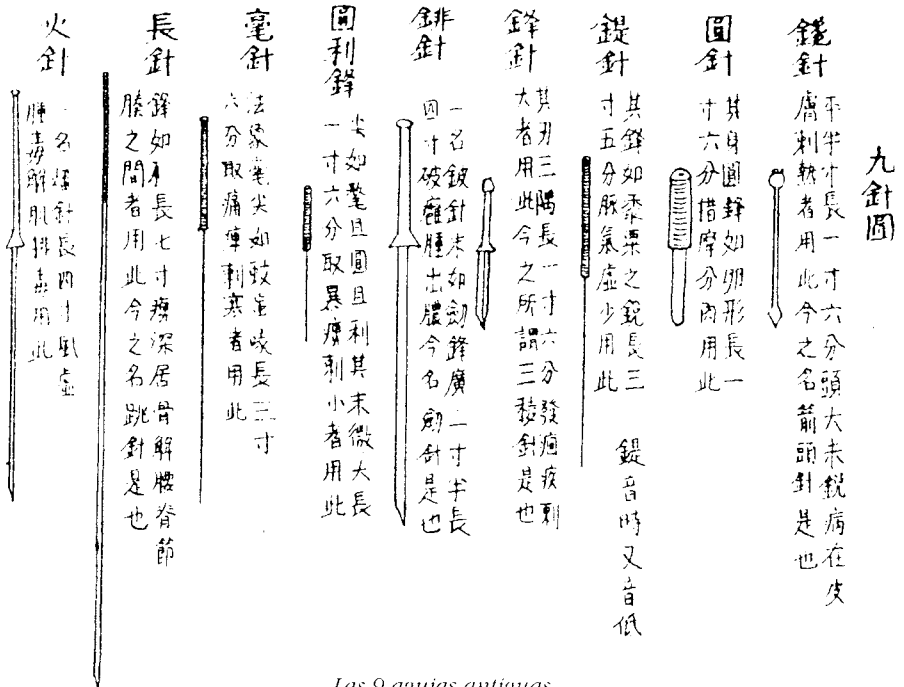 九針圖
鑱針
平半寸長一寸六分頭大末銳病在皮
膚刺熱者用此今之名箭頭針是也
圓針
其身圓鋒如卵形長一
寸六分揩摩分肉用此
鍉針
其鋒如黍粟之銳長三
寸五分脈氣虛少用此
鍉音時又音低
鋒針
其刃三隅長一寸六分發痼疾刺
大者用此今之所謂三稜針是也
鈹針
一名鈹針末如劍鋒廣二寸半長
四寸破癰腫出膿今名劍針是也
圓利鋒
尖如氂且圓且利其末微大長
一寸六分取暴痺刺小者用此
毫針
法象毫尖如蚊虻喙長三寸
六分取痛痺刺寒者用此
長針
鋒如利長七寸痺深居骨解腰脊節
腠之間者用此今之名跳針是也
火針
一名燔針長四寸風虛
腫毒解肌排毒用此
Las 9 agujas antiguas